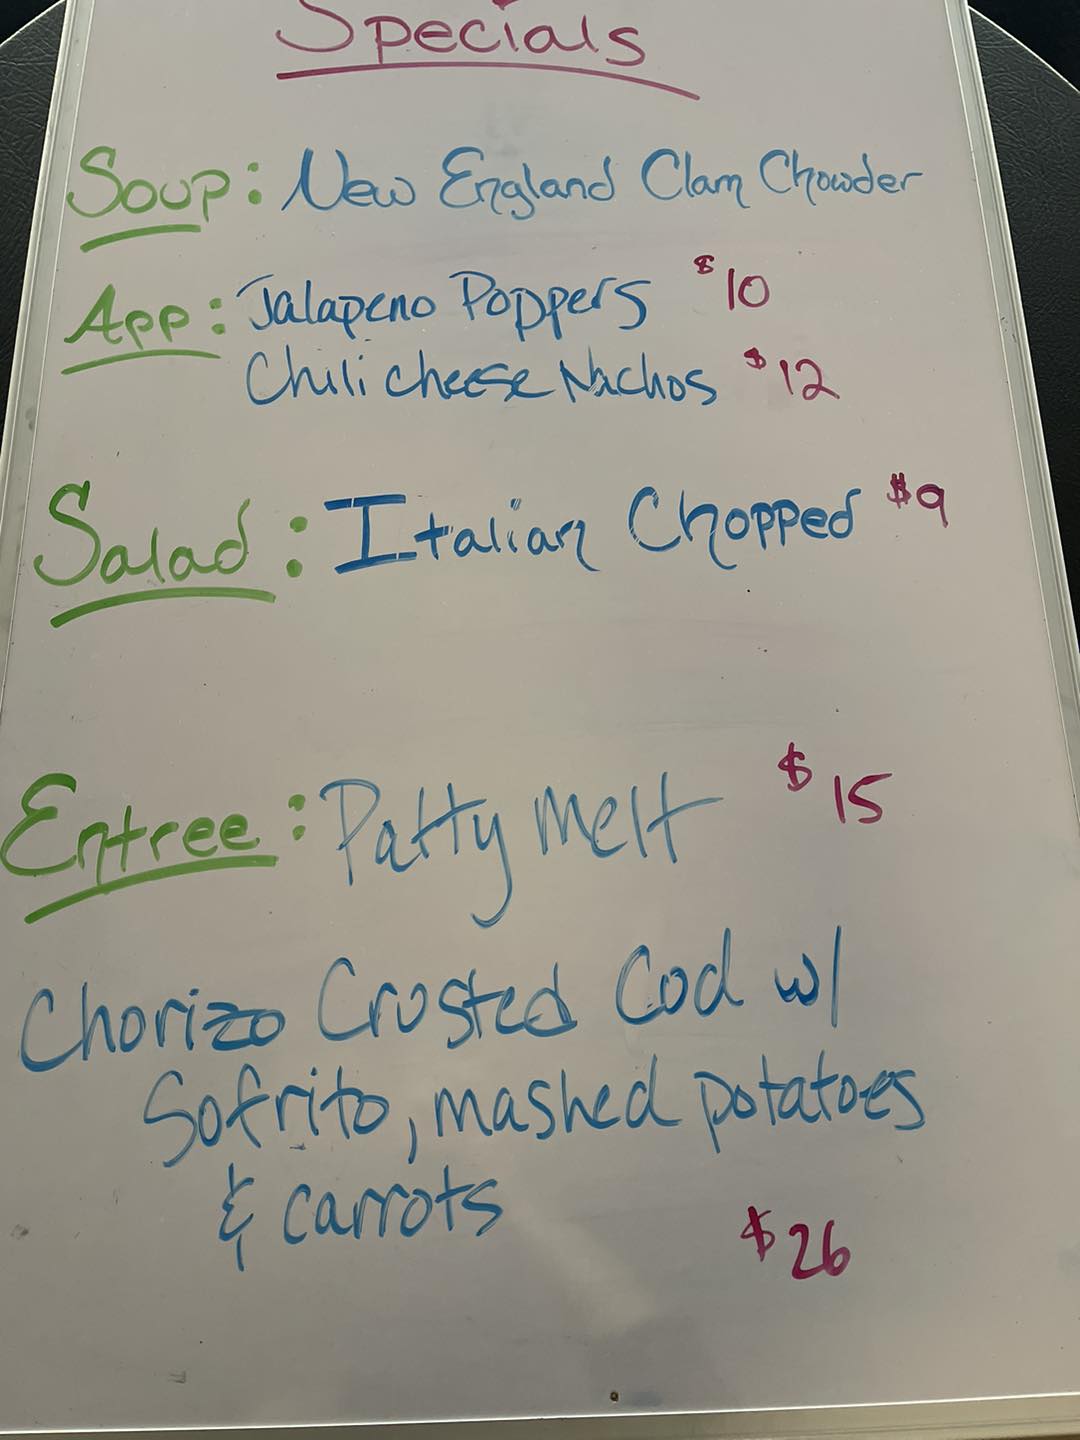 Specials
Soup: New England Clam Chowder
App: Jalapeno Poppers $10
Chili cheese Nachos $12
Salad: Italian Chopped $9
Entree: Patty Melt $15
Chorizo Crusted Cod w/
Sofrito, mashed potatoes
& carrots
$26